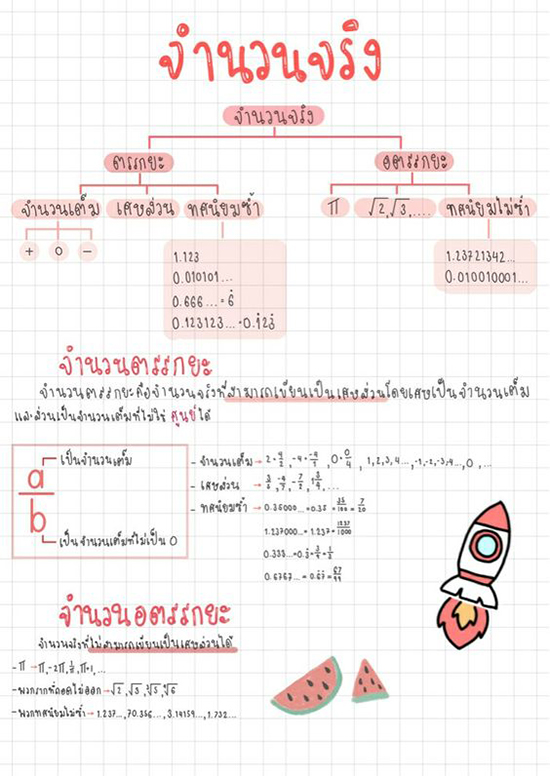 จำนวนจริง
จำนวนจริง
ตรรกยะ
อตรรกยะ
จำนวนเต็ม เศษส่วน ทศนิยมซ้ำ
π √2, √3, .... ทศนิยมไม่ซ้ำ
+ 0 -
1.123
0.010101...
0.666... = 6̇
0.123123... = 0.1̇23̇
1.23721342...
0.010010001...
จำนวนตรรกยะ
จำนวนตรรกยะคือจำนวนจริงที่สามารถเขียนเป็นเศษส่วนโดยเศษเป็นจำนวนเต็ม
และส่วนเป็นจำนวนเต็มที่ไม่ใช่ ศูนย์ ได้
a เป็นจำนวนเต็ม
b เป็นจำนวนเต็มที่ไม่เป็น 0
- จำนวนเต็ม → 2 = 4/2, -4 = -4/1, 0 = 0/4, 1, 2, 3, 4..., -1, -2, -3, -4..., 0, ...
- เศษส่วน →
- ทศนิยมซ้ำ → 0.35000... = 0.35 = 35/100 = 7/20
1.237000... = 1.237 = 1237/1000
0.333... = 0.3̇ = 3/9 = 1/3
0.6767... = 0.6̇7̇ = 67/99
จำนวนอตรรกยะ
จำนวนจริงที่ไม่สามารถเขียนเป็นเศษส่วนได้
- π → π, -2π, π+1, ...
- พวกรากที่ถอดไม่ออก → √2, √3,
- พวกทศนิยมไม่ซ้ำ → 1.237..., 70.356..., 3.14159..., 1.732...